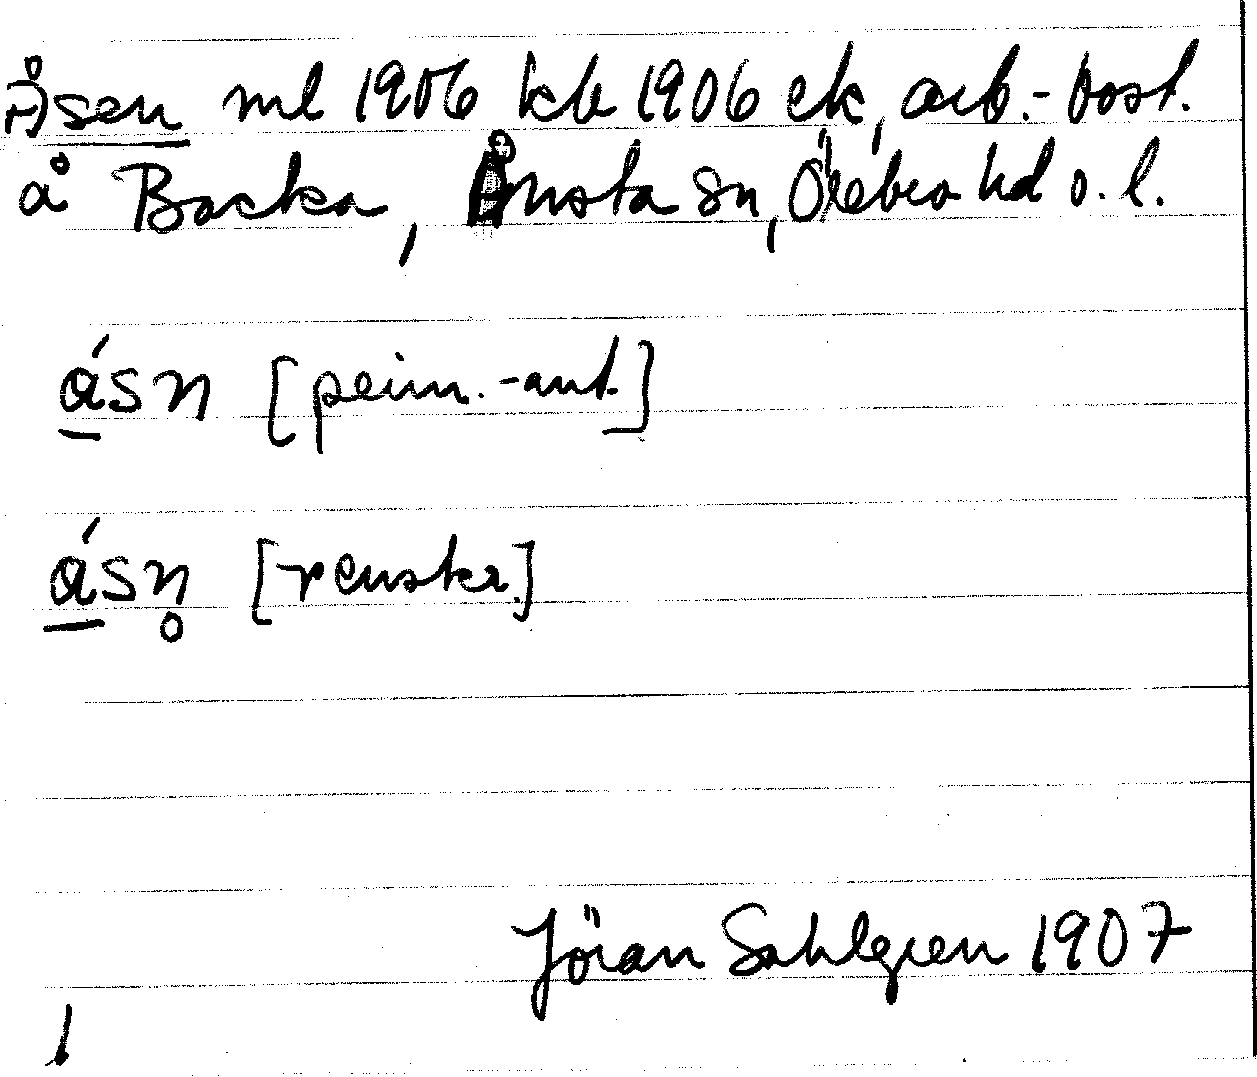 Åsen ml 1906 kb 1906 ek, arb.-bost.
å Backa, Ånsta sn, Örebro hd o. l.
ásn [prim.-ant.]
ásn̥ [renskr.]
Jöran Sahlgren 1907